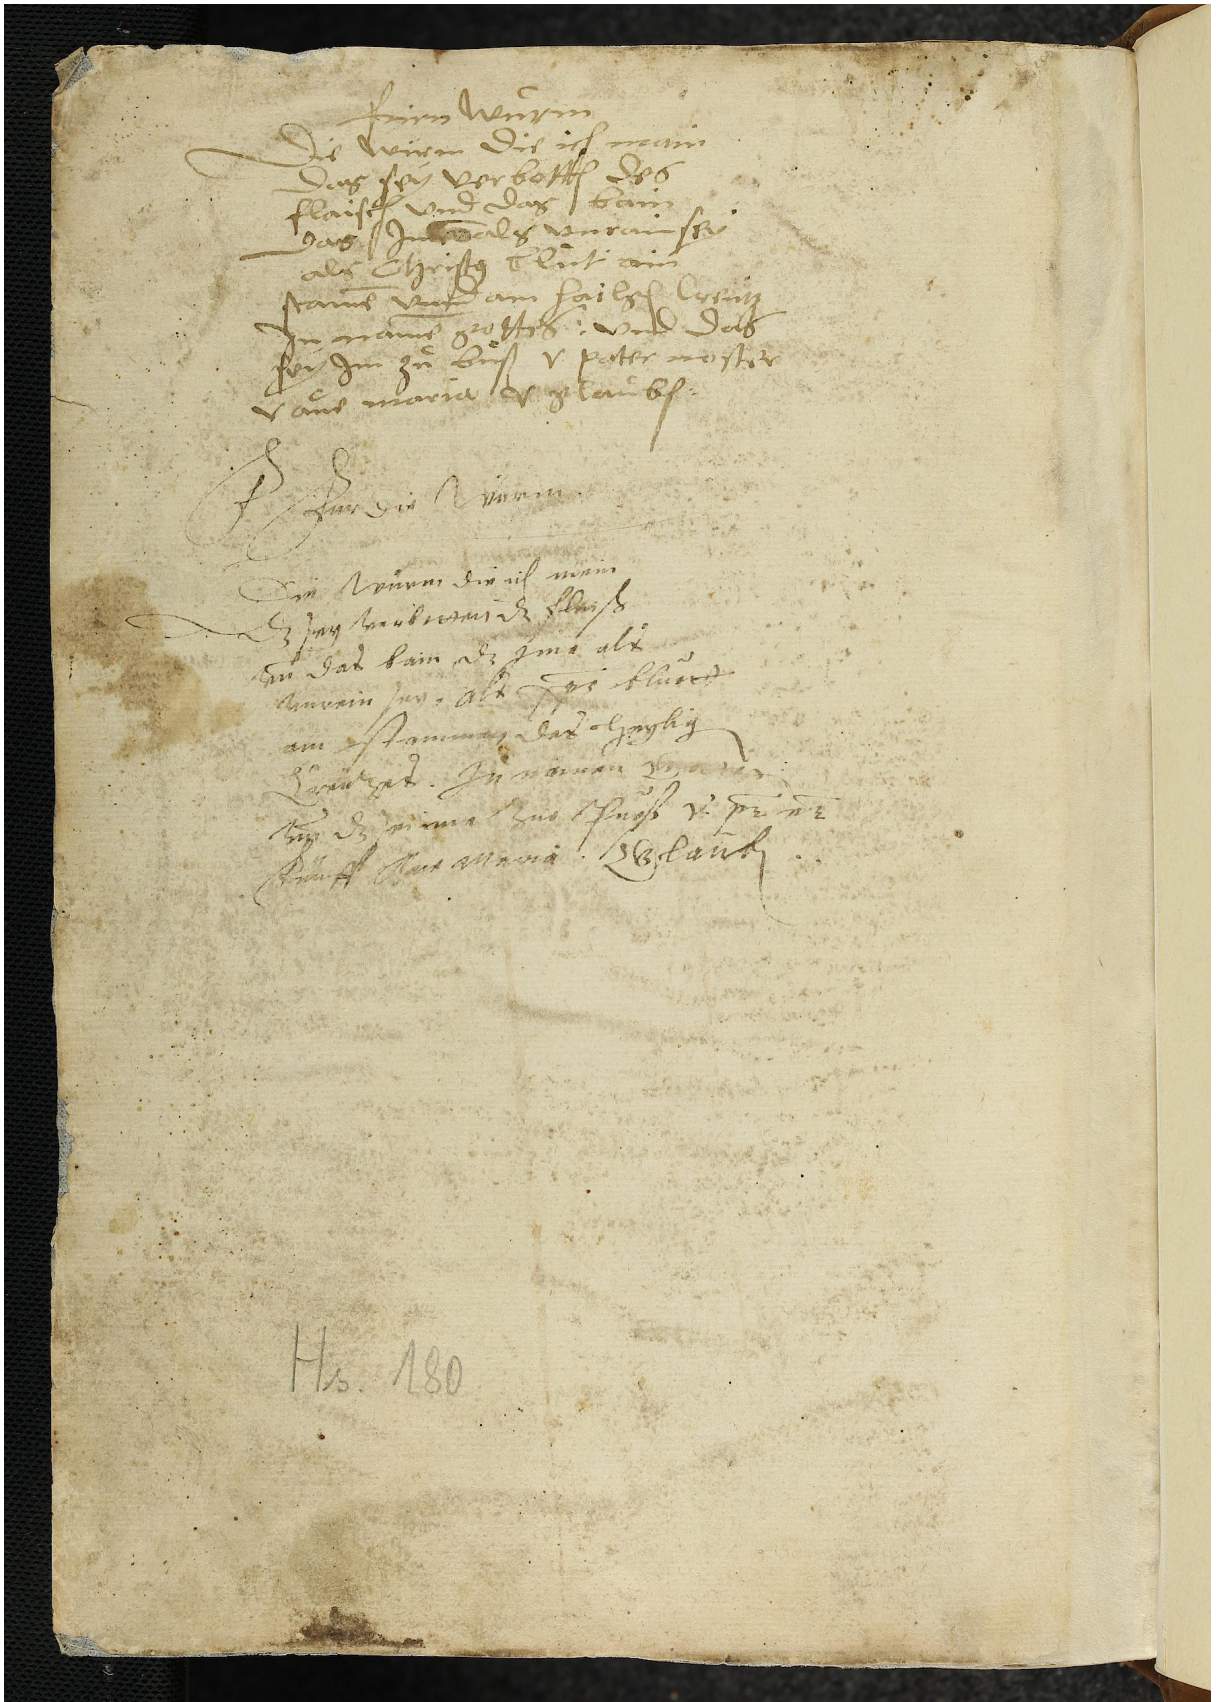 fürn Wurm
Die wirm die ich main
Das sey verbotten des
flaisch vnd das bain
Das Im als vnrain sey
als Christy blut am
stame vnd am hailgen Creutz
In name gottes: vnd das
sey Im zu buß v pater noster
v aue maria v glauben:
Für die Würm
Die Würm die ich mein
dz sey verbotten dz fleisch
vnd das bain dz Ime als
vnrein sey. als xpi bluet
am stammen des heylig
Creutzes. In namen
sey dz seinne zue Puoß v. pr nr
fünff Aue Maria. Glauben..
Hs. 180